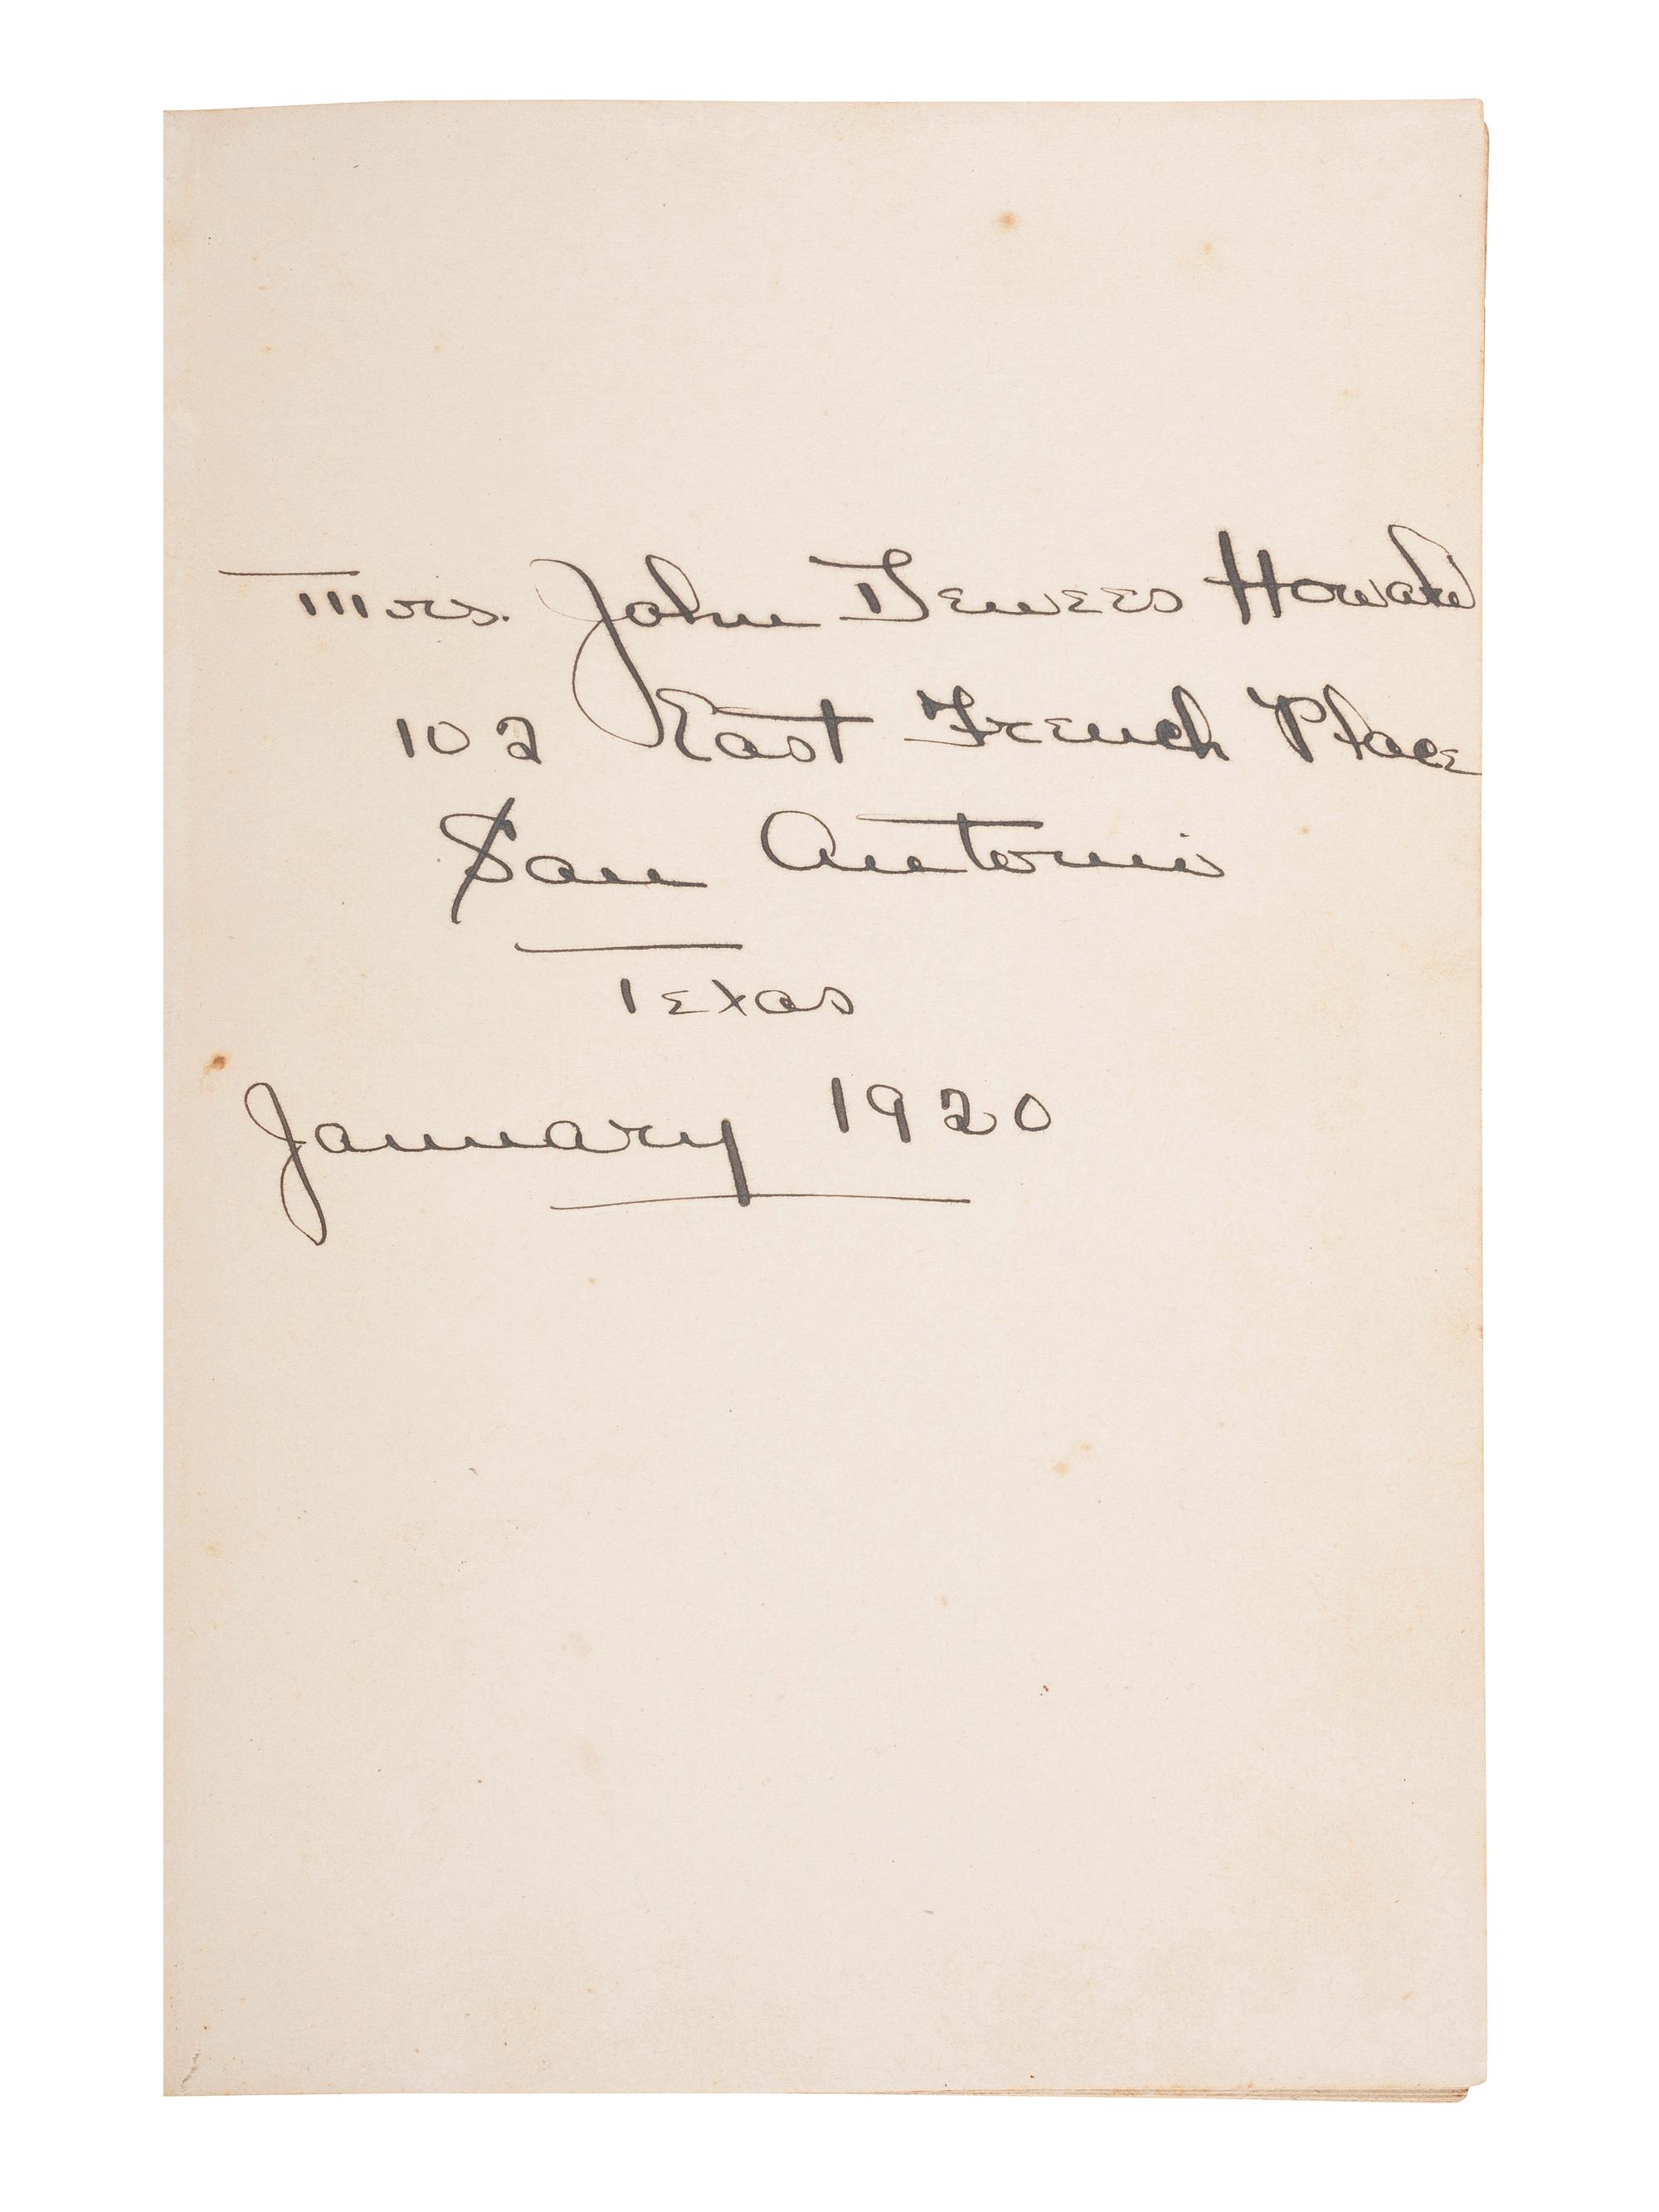 Mrs. John Dewees Howard
102 East French Place
San Antonio
Texas
January 1920